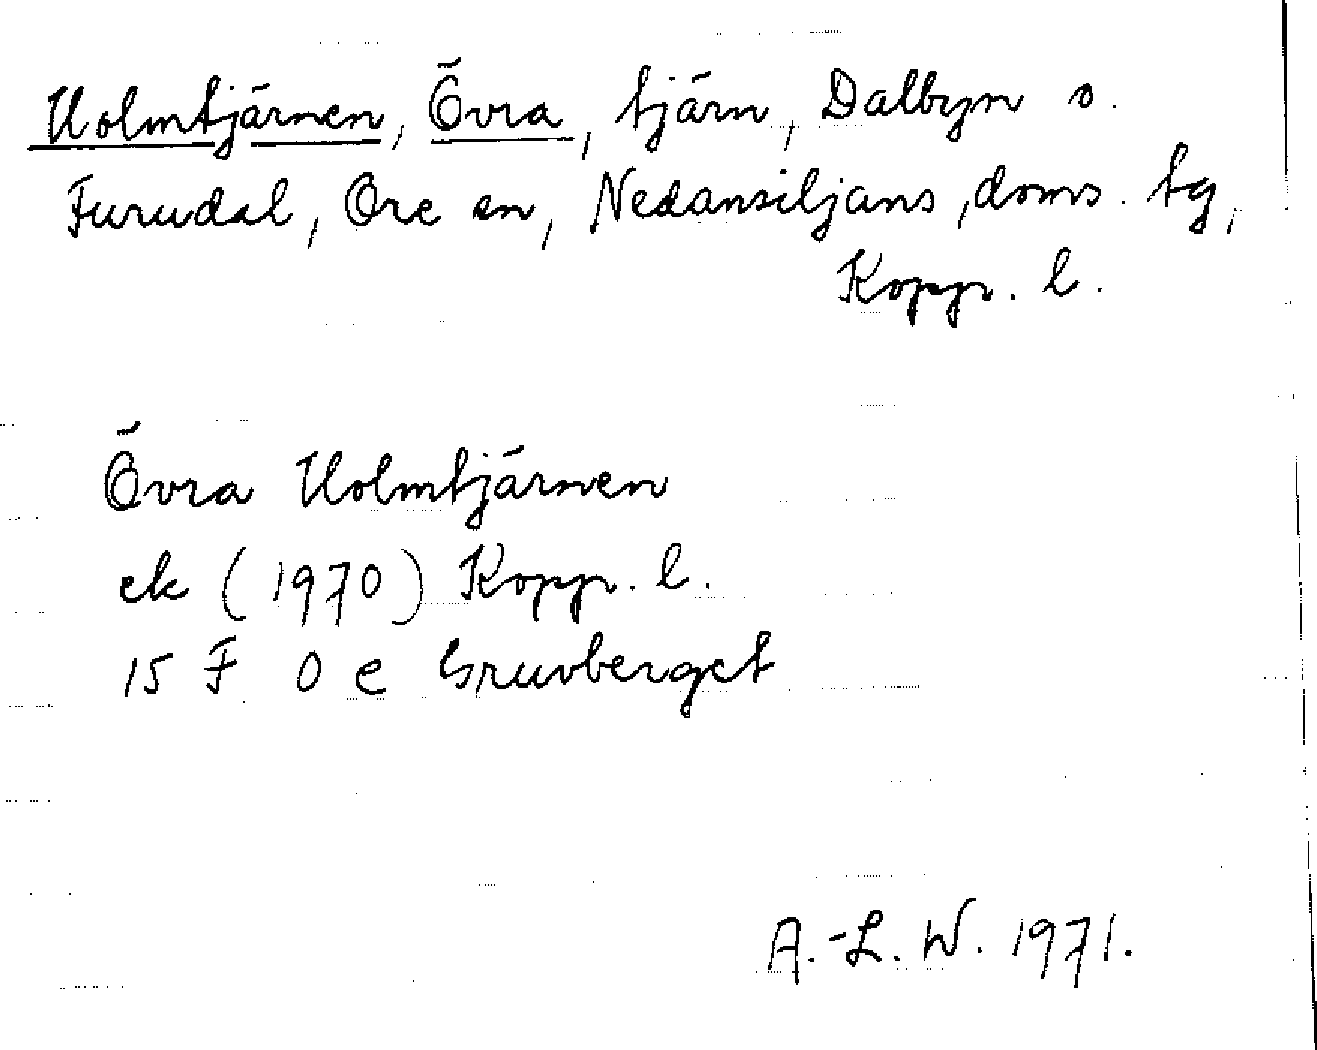 Holmtjärnen, Övra, tjärn, Dalbyn o.
Furudal, Ore sn, Nedansiljans, doms. tg,
Kopp. l.
Övra Holmtjärnen
ek (1970) Kopp. l.
15 F 0 e Gruvberget
A.-L. W. 1971.